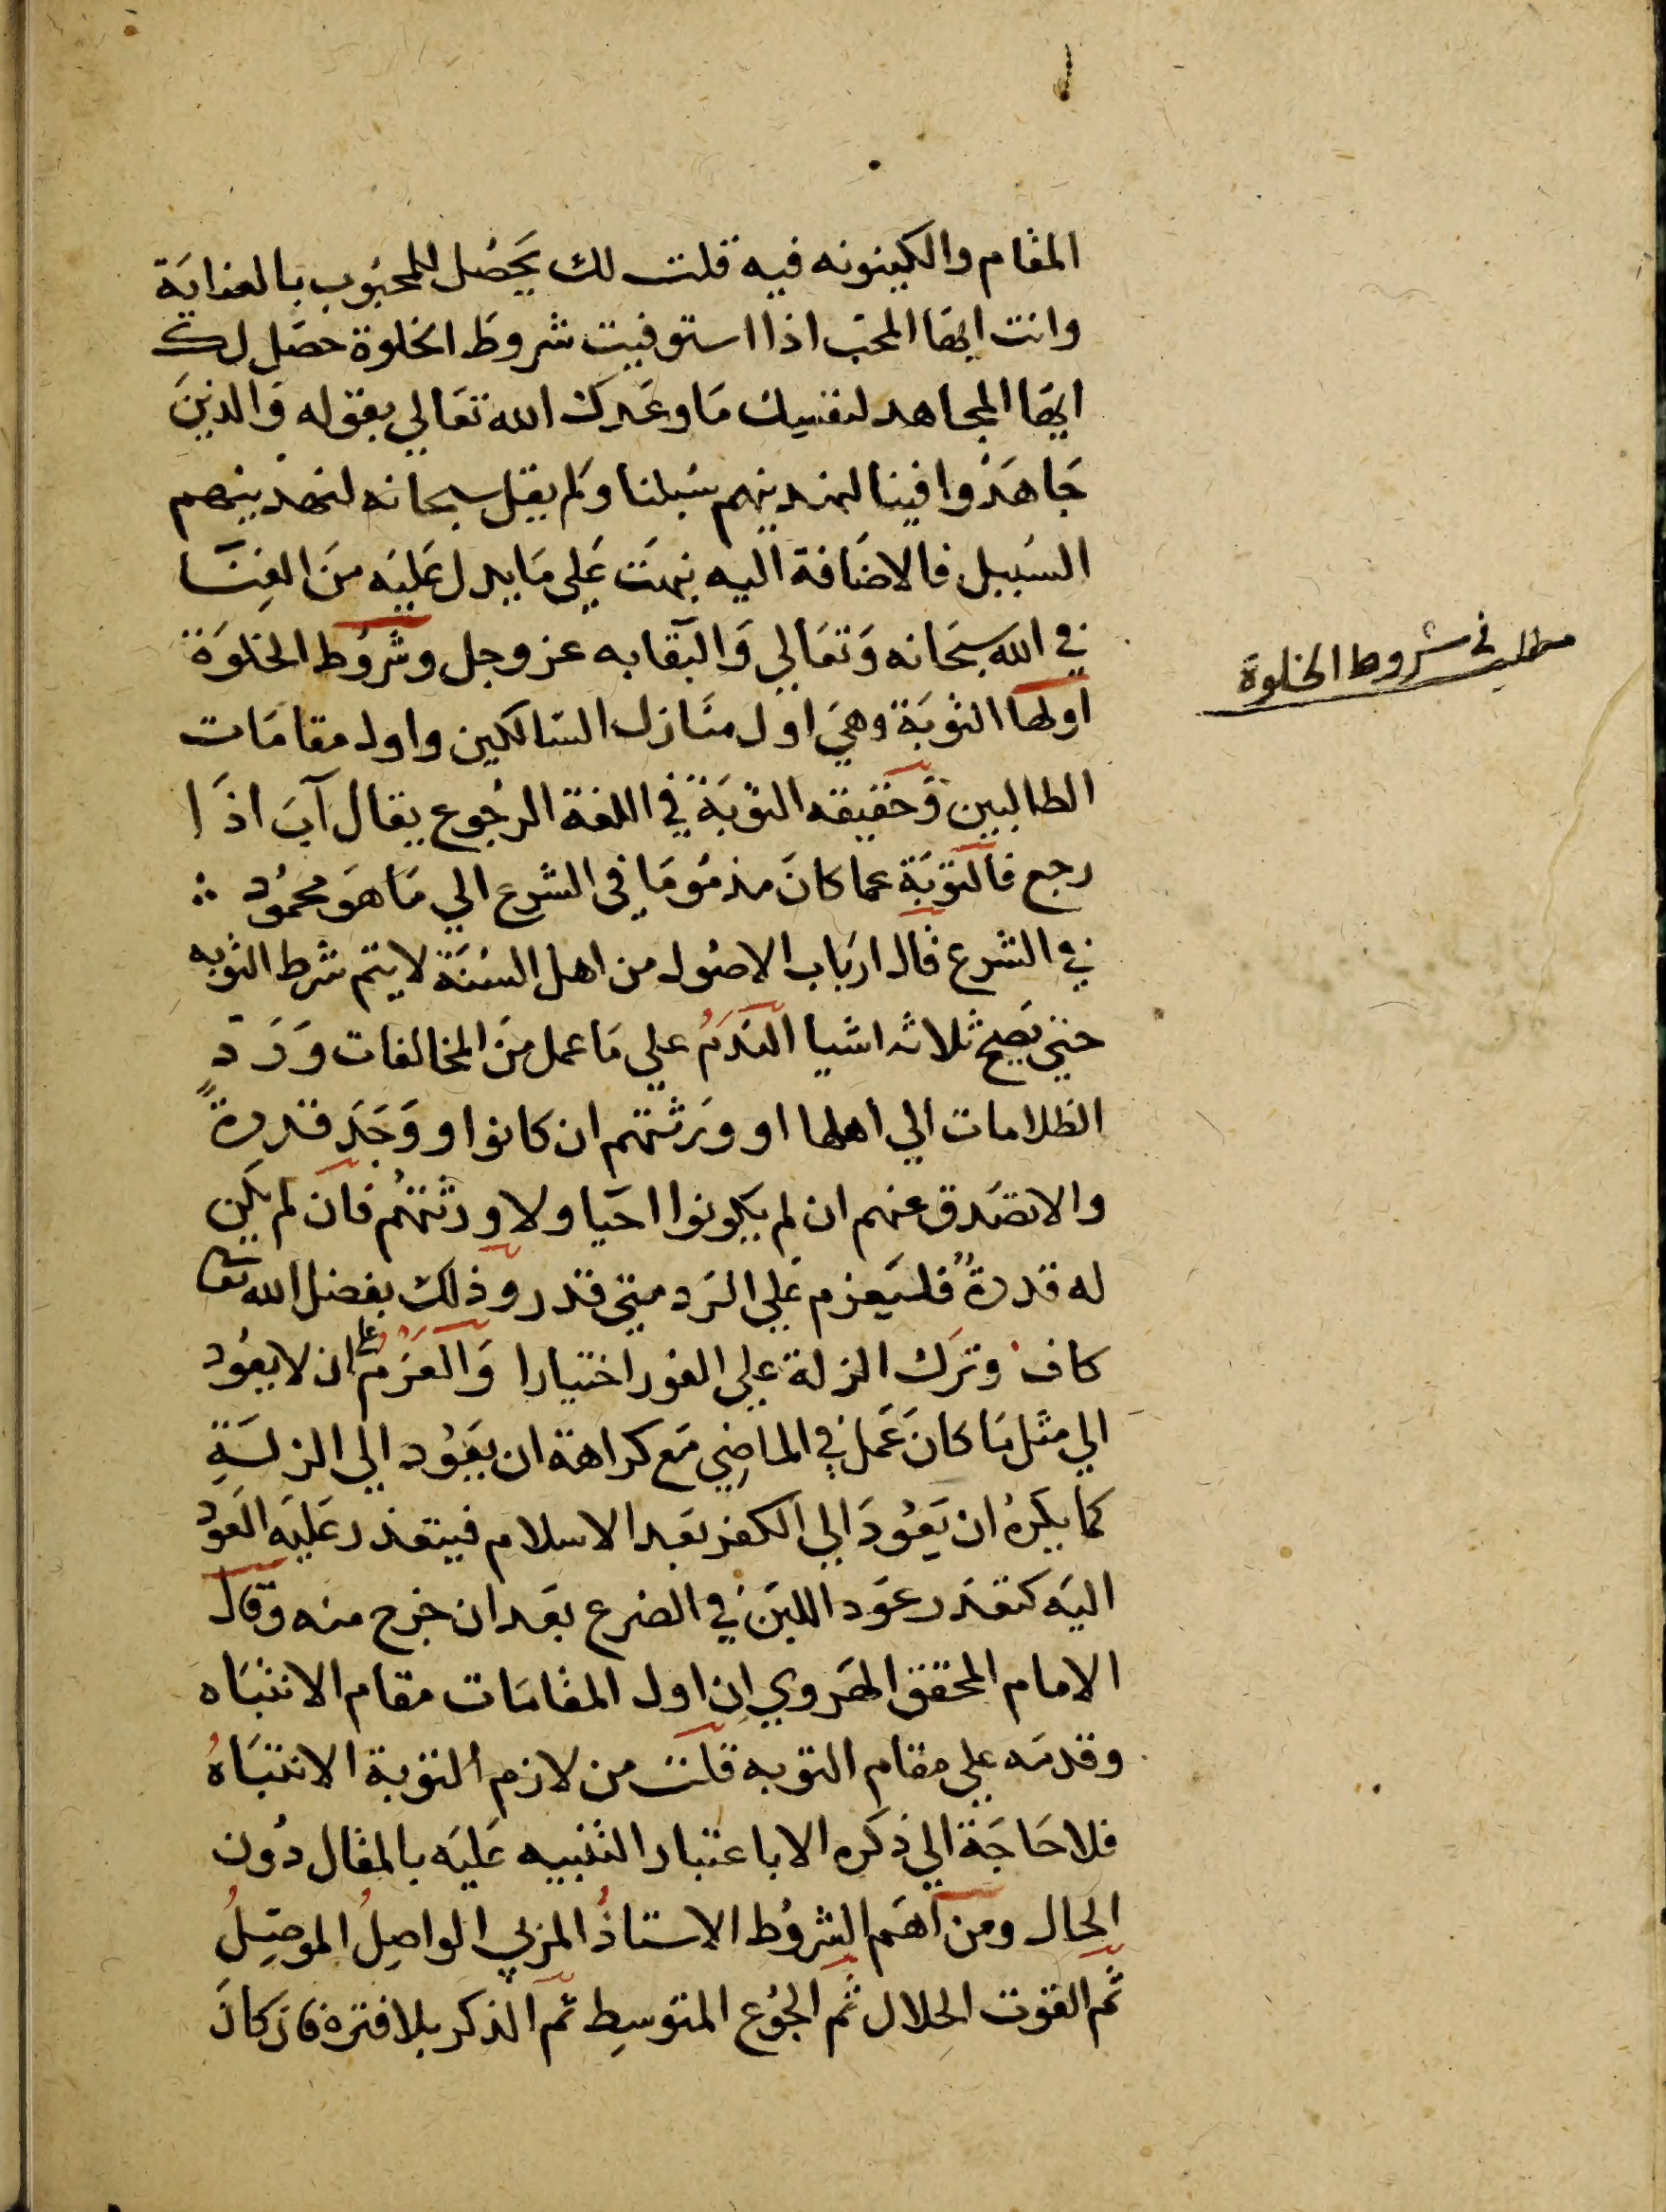 المقام والكينونه فيه قلت لك يَحصُل للمحبُوب بالعنايَة
وانت ايهَا المحب اذا استوفيت شروط الخلوة حصَل لك
ايهَا المجاهد لنفسِك مَا وعَدك الله تعَالي بقوله وَالذينَ
جَاهَدُوا فينا لنهدينهم سُبلنا وَلم يقل سبحانه لنهدينهم
السَبيل فالاضَافة اليه نبهَت عَلي مَا يدل عَليَه منَ الفِنَا
في الله سبحَانه وَتعَالي وَالبَقا به عز وجل وشُروُط الخلوَة
اولها التوبَة وهيَ اول منَازل السَالكين واول مقامَات
الطالبين وَحقيقه التوبَة في اللغة الرجُوع يقال آبَ اذَا
رجع فالتوَبَة عما كانَ مذمُومَا في الشرع الي مَا هَوَ محمُود
في الشرع قال ارَباب الاصُول من اهل السُنَة لا يتم شرط التوبه
حتي تصِح ثلاثه اشيا النَدَمُ علي مَا عمل منَ المخالفات وَرَد
الظلامات الي اهلها او ورَثتهم ان كانوا ووَجَدَ قدرةً
والا تصَدق عنهم ان لم يكونوا احَيا ولا ورثتهُم فان لم يكن
له قدرةٌ فليَعزم عَلي الرَد متي قدر وذلك بفضل الله تعا
كاف وترَك الزلة علي الفور اختيارا وَالعَزمُ علي ان لا يعُود
الي مثل مَا كانَ عَمَل في الماضِي مَع كراهة ان يعَوُد الي الزلَةِ
كما يكرهُ ان يَعُودَ الي الكفر بعَد الاسلام فيتعذر عَليَه العَوُد
اليَه كتعَذر عَوَد اللبَن في الضرع بعَد ان خرج منه وقال
الامام المحقق الهَروي ان اول المقامَات مقام الانتبَاه
وقدمَه علي مقام التوبه قلت من لازم التوبة الانتبَاهُ
فلا حَاجَة الي ذكره الا باعتبار التنبيه عَليَه بالمقال دُون
الحال ومن اهَم الشروُط الاستاذُ المربي الواصِلُ الموصِلُ
ثم القوت الحلال ثم الجُوُع المتوسِط ثم الذكر بلا فترة فان كانَ
مطلب في شروط الخلوة